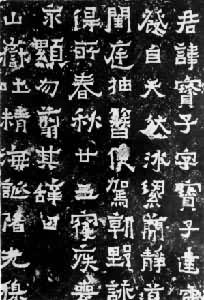 君諱寶子字寶子建寧
發自天然冰絜簡靜道
閨庭抽簪俟駕朝野詠
得所春秋廿五寢疾喪
永顯勿翦其辭曰
山嶽吐精海誕陼光穆